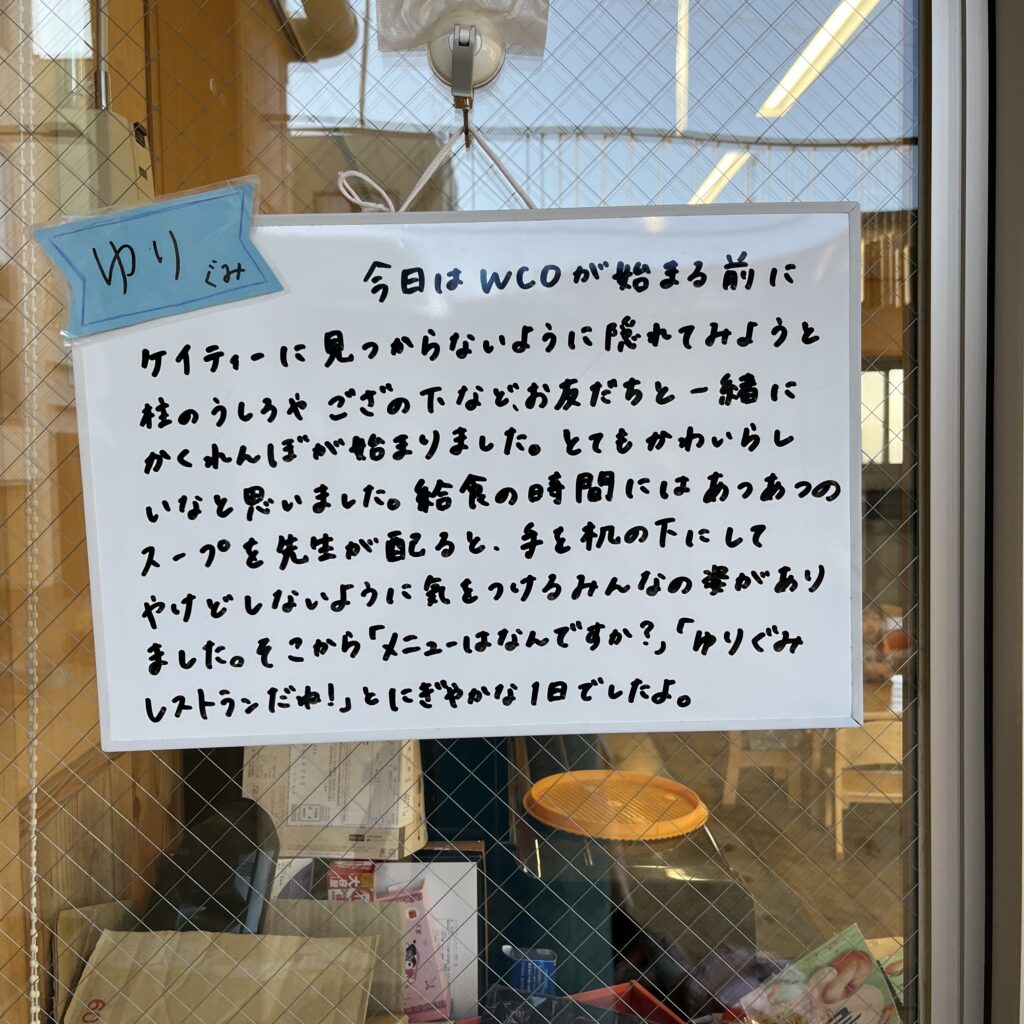 ゆりぐみ
今日はWCOが始まる前に
ケイティーに見つからないように隠れてみようと
柱のうしろや ござの下など、お友だちと一緒に
かくれんぼが始まりました。とてもかわいらし
いなと思いました。給食の時間にはあつあつの
スープを先生が配ると、手を机の下にして
やけどしないように気をつけるみんなの姿があり
ました。そこから「メニューはなんですか?」「ゆりぐみ
レストランだね!」とにぎやかな1日でしたよ。